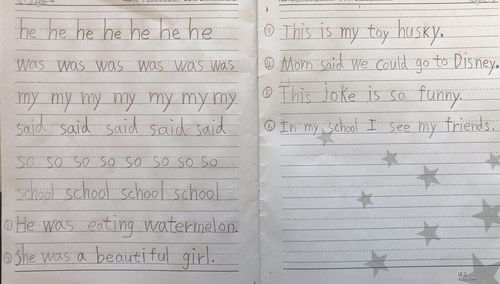 he he he he he he he
was was was was was was
my my my my my my my
said said said said said
so so so so so so so so
school school school school
① He was eating watermelon.
② She was a beautiful girl.
③ This is my toy husky.
④ Mom said we could go to Disney.
⑤ This joke is so funny.
⑥ In my school I see my friends.